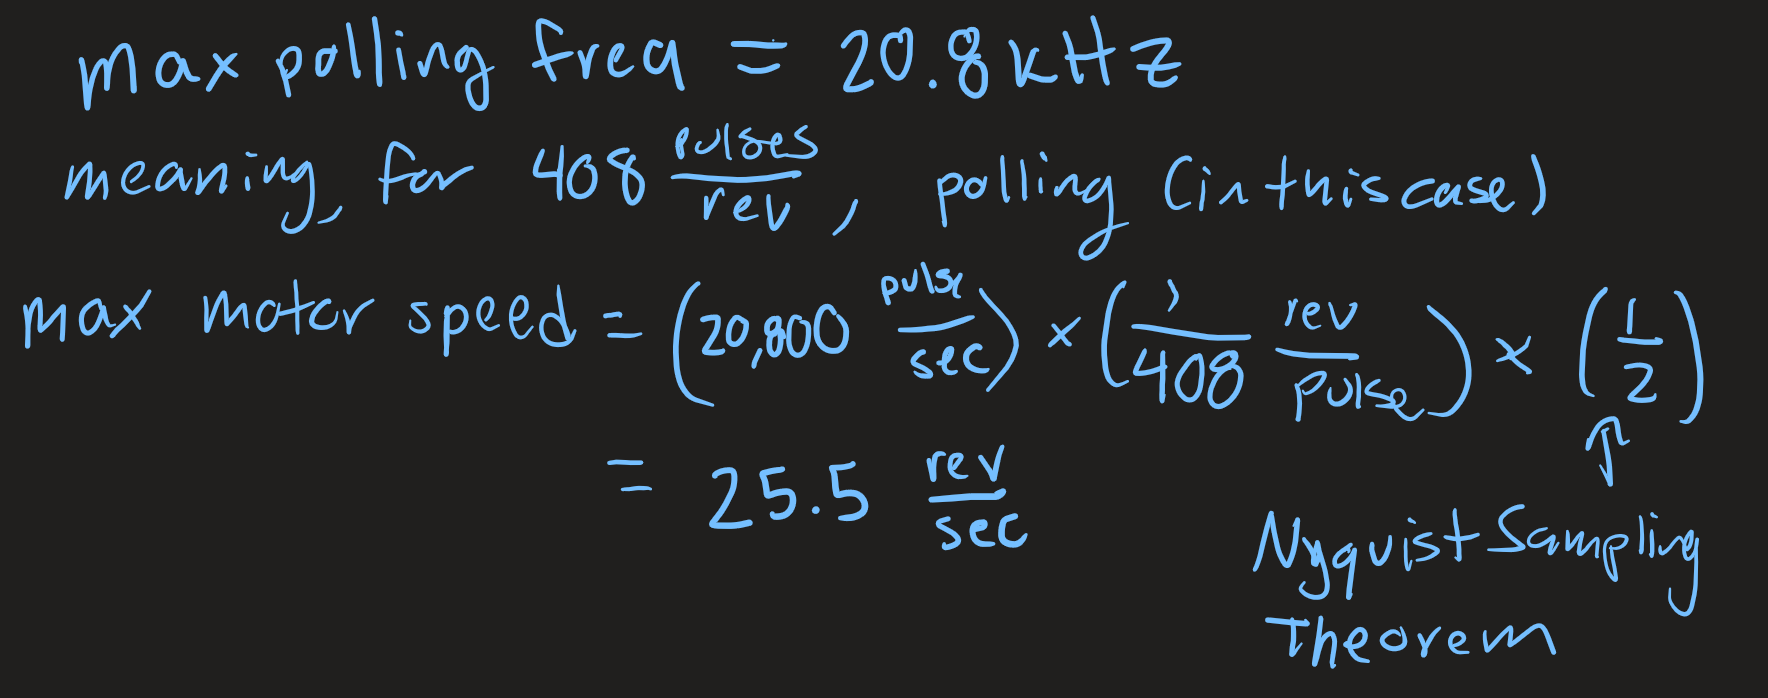 max polling freq = 20.8 kHz
meaning, for 408 pulses/rev, polling (in this case)
max motor speed = (20,800 pulse/sec) × (1/408 rev/pulse) × (1/2)
= 25.5 rev/sec
↑
Nyquist Sampling
Theorem